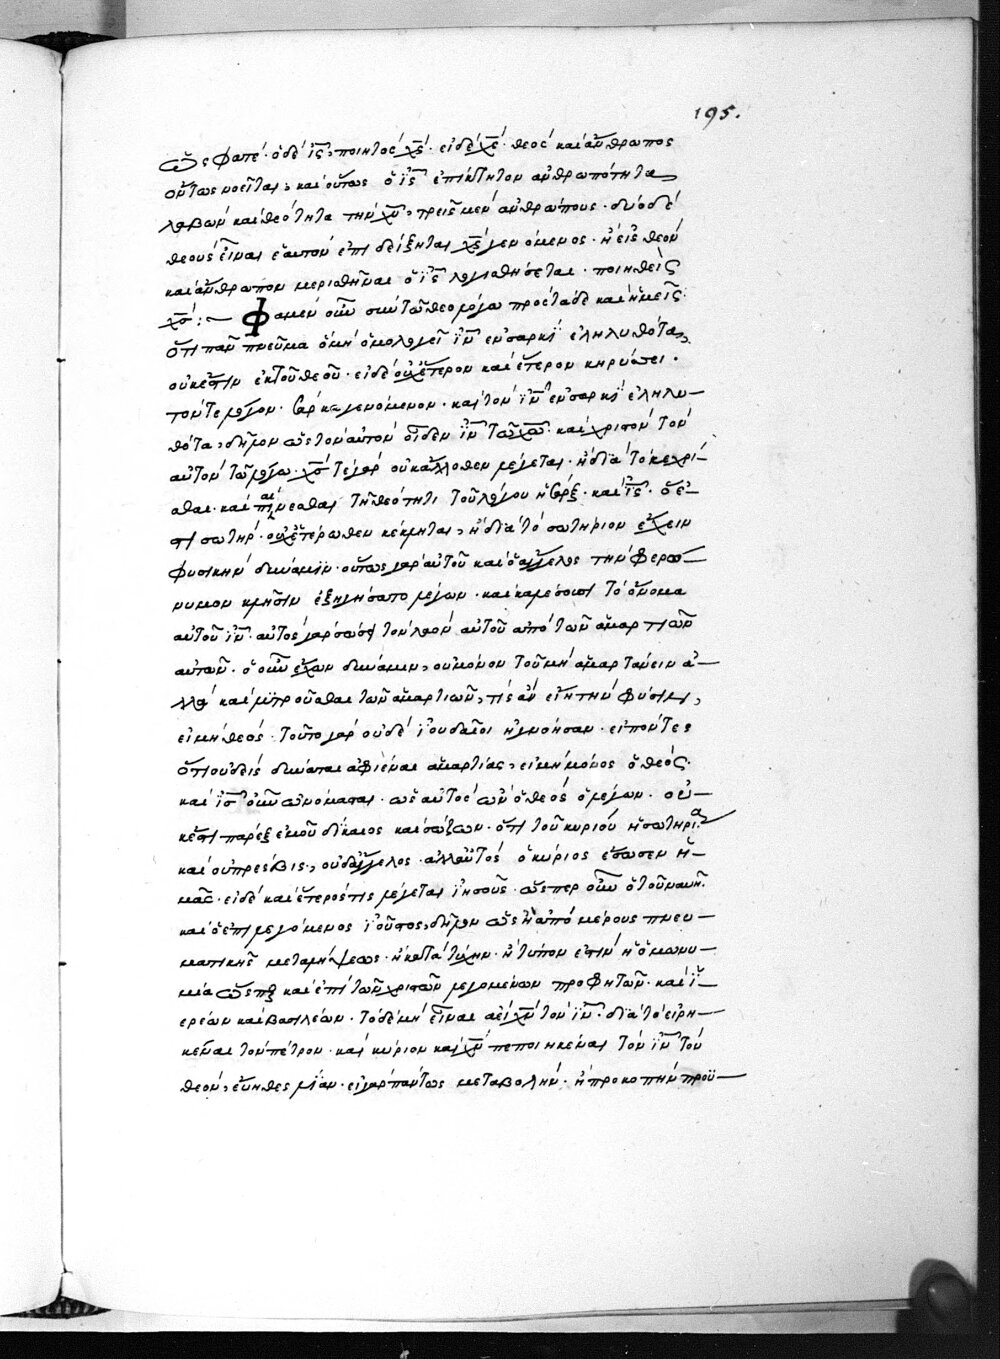 195.
ὥς φατέ· ὁ δὲ ις͞, ποιητὸς χς͞· εἰ δὲ χς͞· θεὸς καὶ ἄνθρωπος
ὄντως νοεῖται, καὶ οὕτως ὁ ις͞ ἐπίκτητον ἀνθρωπότητα
λαβὼν καὶ θεότητα τὴν χυ͞, τρεῖς μὲν ἀνθρώπους· δύο δὲ
θεοὺς εἶναι ἑαυτὸν ἐπιδείξηται χς͞ γενόμενος· ἢ εἰς θεὸν
καὶ ἄνθρωπον μερισθῆναι ὁ ις͞ λογισθήσεται· ποιηθεὶς
χς͞:~ Φαμὲν οὖν σὺν τῶ θεολόγω προστάδε καὶ ἡμεῖς·
ὅτι πᾶν πνεῦμα ὃ μὴ ὁμολογεῖ ιν͞ ἐν σαρκὶ ἐληλυθότα,
οὐκ ἔστιν ἐκ τοῦ θεοῦ· εἰ δὲ οὐχ ἕτερον καὶ ἕτερον κηρύττει·
τόν τε λόγον· σάρκα γενόμενον· καὶ τὸν ιν͞ ἐν σαρκὶ ἐληλυ-
θότα, δῆλον ὡς τὸν αὐτὸν οἶδεν ιν͞ τῶ χω͞· καὶ χριστὸν τὸν
αὐτὸν τῶ λόγω· χς͞ τε γὰρ οὐκ ἄλλοθεν λέγεται· ἢ διὰ τὸ κεχρί-
σθαι· καὶ τῆ θεότητι τοῦ λόγου ἡ σάρξ· καὶ ις͞· ὅ ἐ-
στι σωτήρ· οὐχ ἑτέρωθεν κέκληται, ἢ διὰ τὸ σωτήριον ἔχειν
φυσικὴν δύναμιν· οὕτως γὰρ αὐτοῦ καὶ ὁ ἄγγελος τὴν φερώ-
νυμον κλῆσιν ἐξηγήσατο λέγων· καὶ καλέσουσι τὸ ὄνομα
αὐτοῦ ιν͞· αὐτὸς γὰρ σώσει τὸν λαὸν αὐτοῦ ἀπὸ τῶν ἁμαρτιῶν
αὐτῶν· ὁ οὖν ἔχων δύναμιν, οὐ μόνον τοῦ μὴ ἁμαρτάνειν ἀ-
λλὰ καὶ λυτροῦσθαι τῶν ἁμαρτιῶν, τίς ἂν εἴη τὴν φύσιν,
εἰ μὴ θεός· τοῦτο γὰρ οὐδὲ ἰουδαῖοι ἠγνόησαν· εἰπόντες
ὅτι οὐδεὶς δύναται ἀφιέναι ἁμαρτίας, εἰ μὴ μόνος ὁ θεός·
καὶ ις͞ οὖν ὠνόμασται· ὡς αὐτὸς ὢν ὁ θεὸς ὁ λέγων· οὐ-
κ ἔστι πάρεξ ἐμοῦ δίκαιος καὶ σώζων· ὅτι τοῦ κυρίου ἡ σωτηρία
καὶ οὐ πρέσβις, οὐδ' ἄγγελος· ἀλλ' αὐτὸς ὁ κύριος ἔσωσεν ἡ-
μᾶς· εἰ δὲ καὶ ἕτερός τις λέγεται ἰησοῦς· ὥσπερ οὖν ὁ τοῦ ναυῆ·
καὶ ὁ ἐπιλεγόμενος ἰοῦστος, δῆλον ὡς ἢ ἀπὸ μέρους πνευ-
ματικῆς μεταλήψεως· ἢ κατὰ τύχην· ἢ τύπον ἐστὶν ἡ ὁμωνυ-
μία ὥσπερ καὶ ἐπὶ τῶν χριστῶν λεγομένων προφητῶν· καὶ ἱ-
ερέων καὶ βασιλέων· τὸ δὲ μὴ εἶναι ἀεὶ χν͞ τὸν ιν͞· διὰ τὸ εἰρη-
κέναι τὸν πέτρον· καὶ κύριον καὶ χν͞ πεποιηκέναι τὸν ιν͞ τὸν
θεόν, εὔηθες λίαν· εἰ γὰρ πάντως μεταβολὴν· ἢ προκοπὴν προϋ-